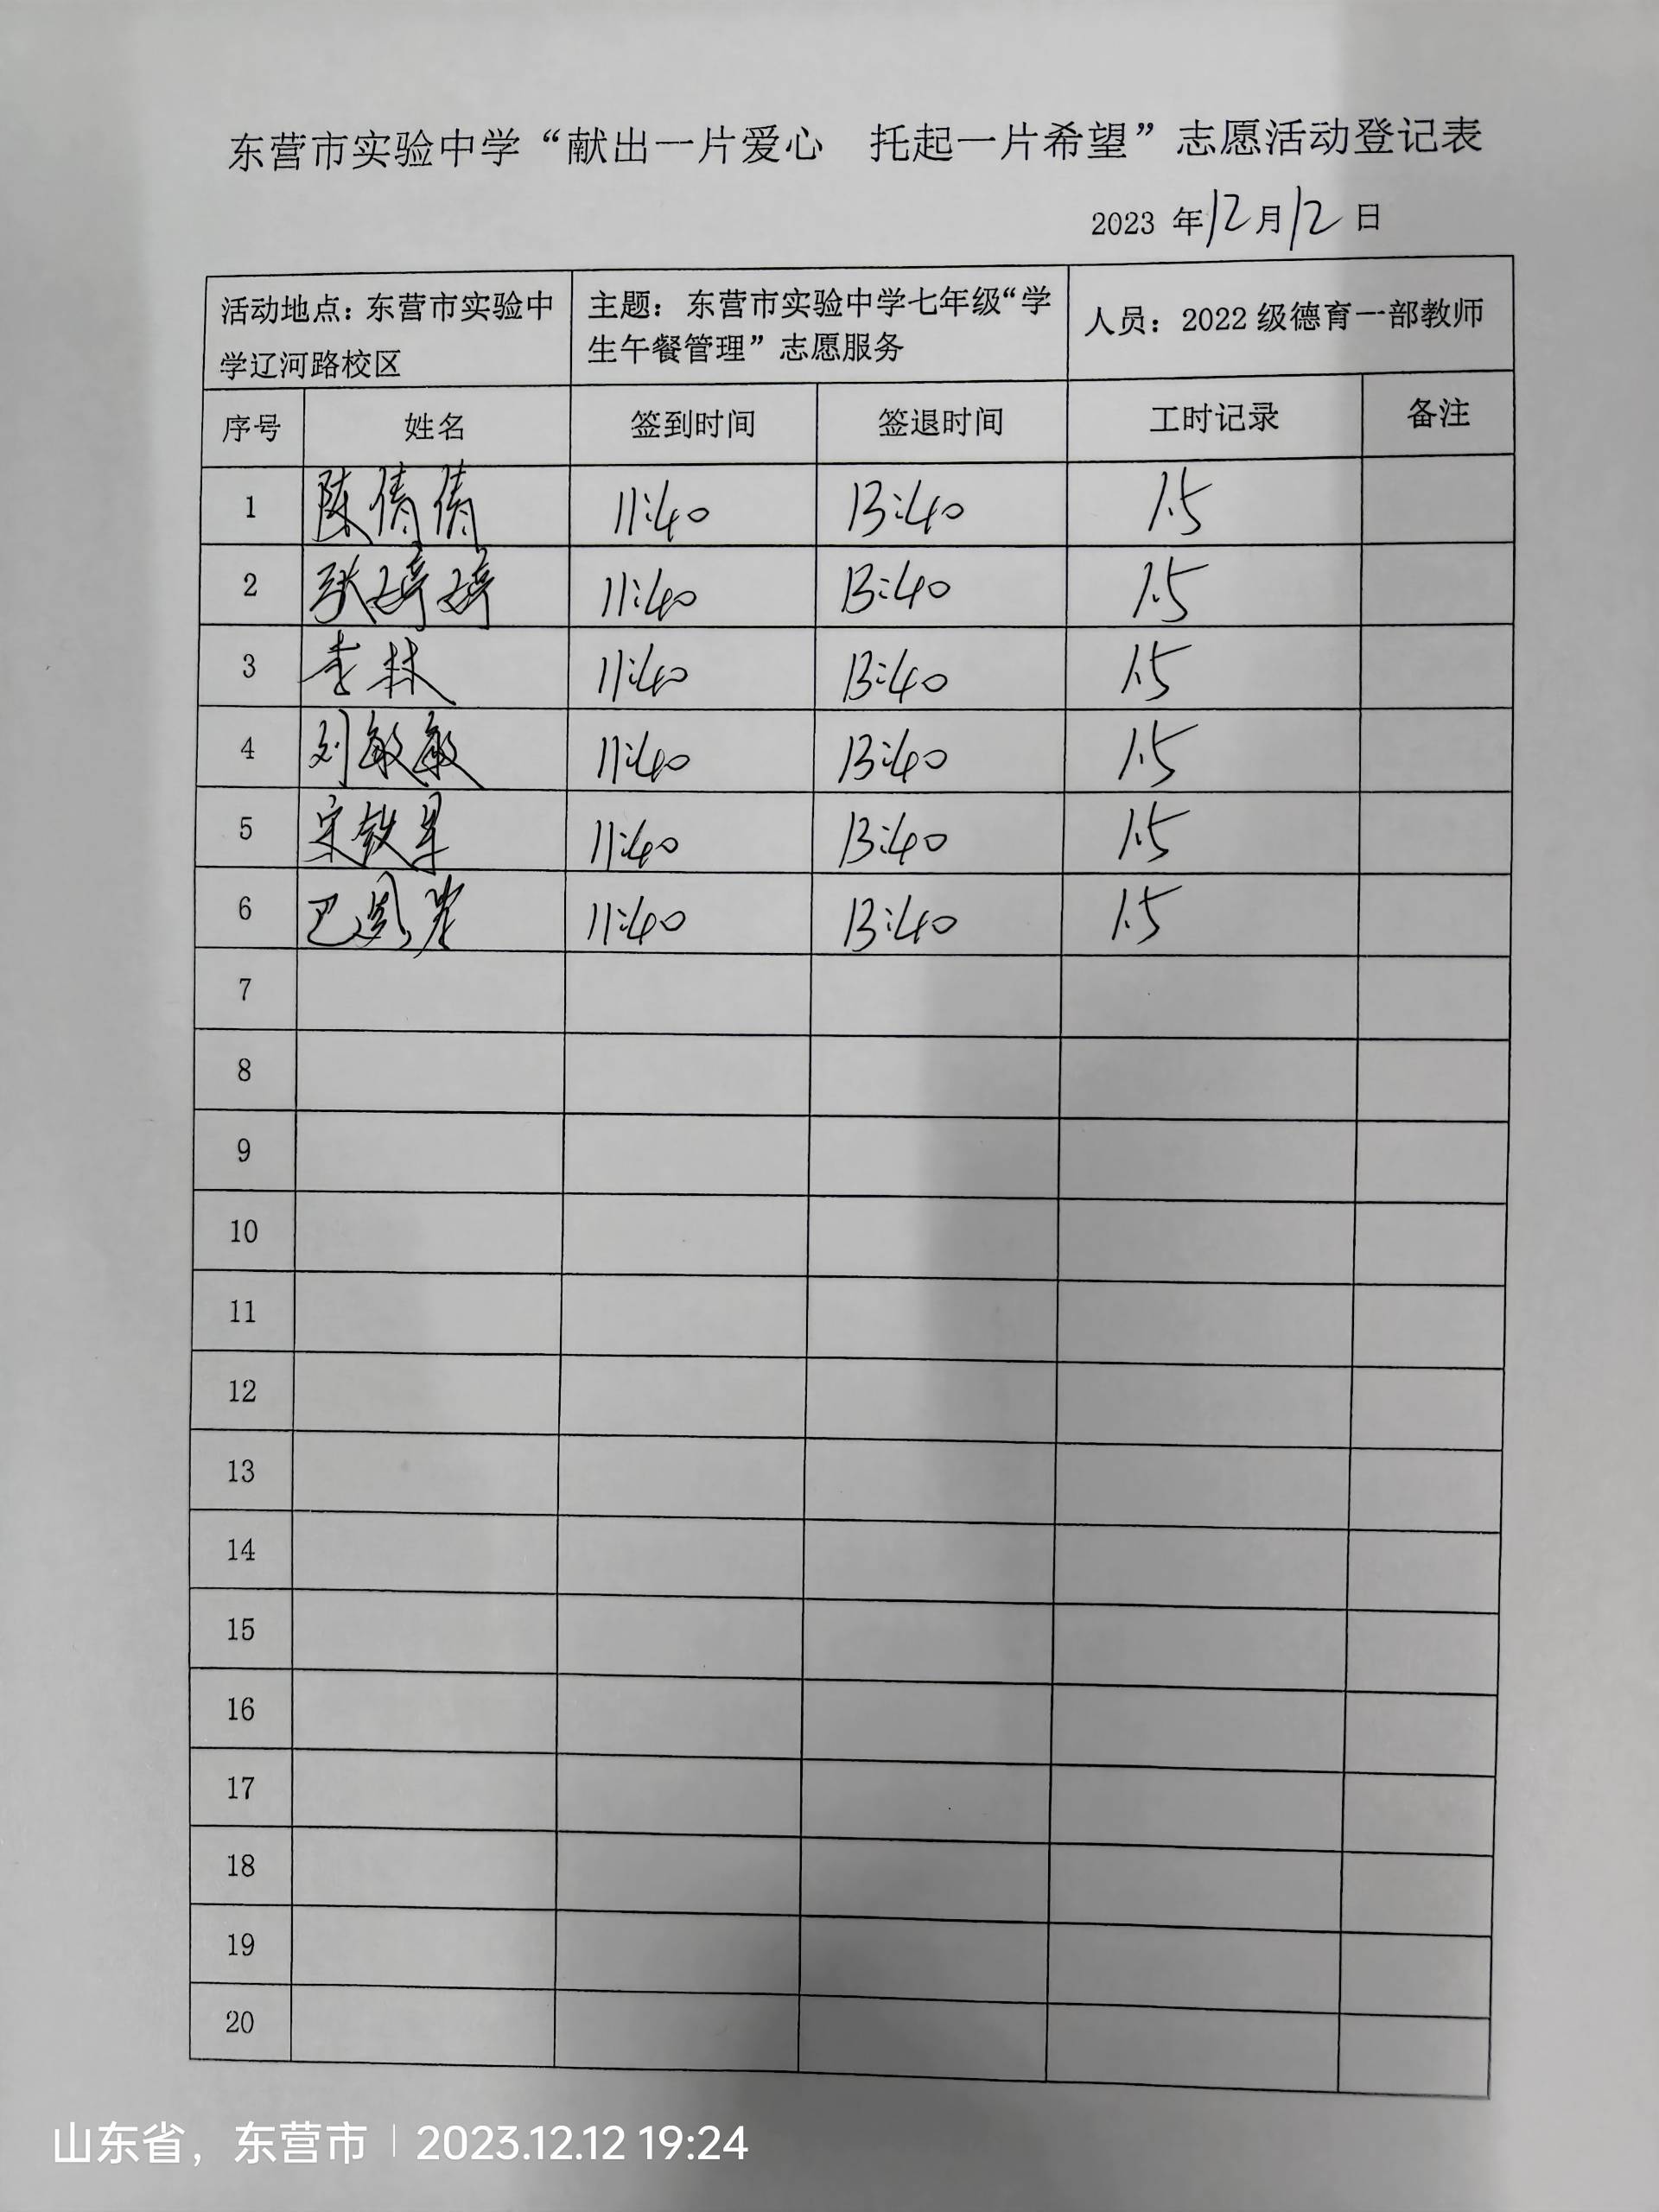 东营市实验中学“献出一片爱心 托起一片希望”志愿活动登记表
2023 年12月12日
活动地点：东营市实验中学辽河路校区 主题：东营市实验中学七年级“学生午餐管理”志愿服务 人员：2022 级德育一部教师
序号 姓名 签到时间 签退时间 工时记录 备注
1 陈倩倩 11:40 13:40 1.5
2 张婷婷 11:40 13:40 1.5
3 李林 11:40 13:40 1.5
4 刘敏敏 11:40 13:40 1.5
5 宋 11:40 13:40 1.5
6 巴 11:40 13:40 1.5
7
8
9
10
11
12
13
14
15
16
17
18
19
20
山东省，东营市 | 2023.12.12 19:24